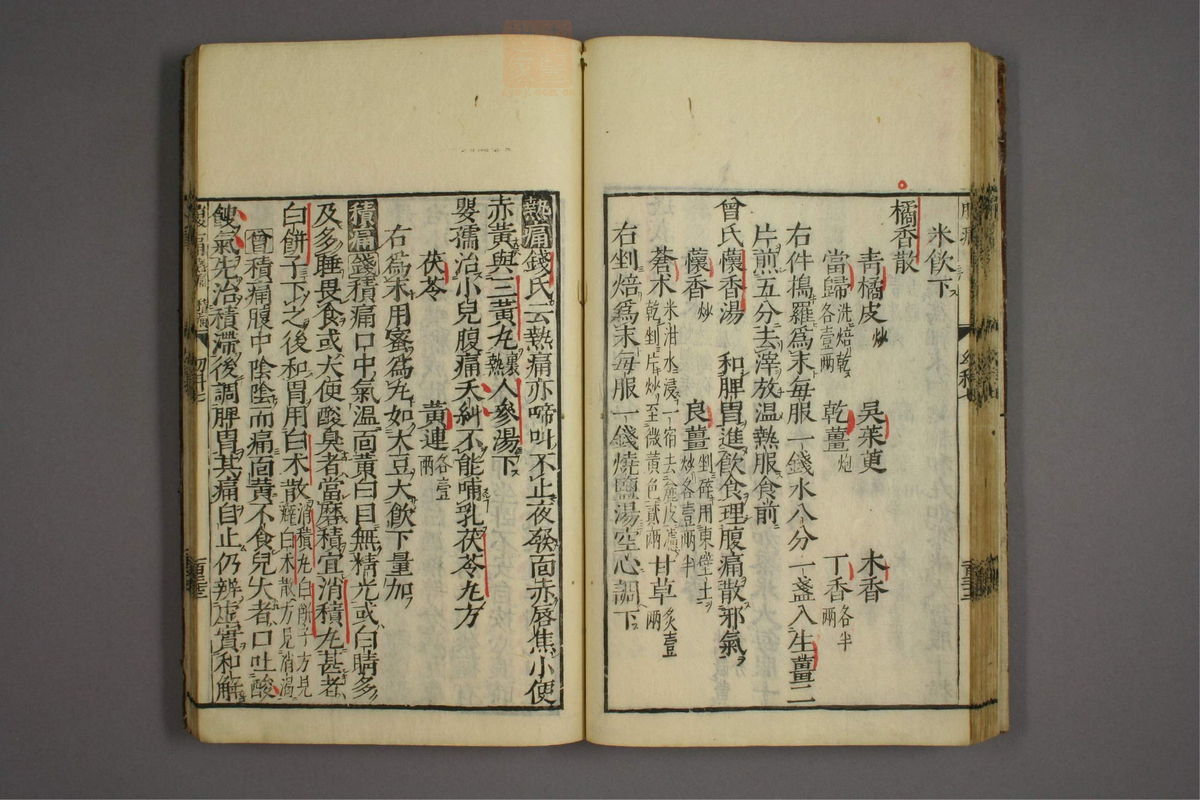 米飲下
橘香散
青橘皮炒 吳茱萸 木香
當歸洗焙乾各壹兩 乾薑炮 丁香各半兩
右件搗羅爲末每服一錢水八分一盞入生薑二
片煎五分去滓放温熱服食前
曾氏蘹香湯 和脾胃進飲食理腹痛散邪氣
蘹香炒 良薑剉碎用東壁土炒各壹兩半
蒼术米泔水浸一宿去麄皮濾乾剉片炒至微黄色貳兩 甘草炙壹兩
右剉焙爲末每服一錢燒鹽湯空心調下
熱痛錢氏云熱痛亦啼叫不止夜發面赤唇焦小便
赤黄與三黄丸裏熱人參湯下
嬰孺治小兒腹痛夭糾不能哺乳茯苓丸方
茯苓 黄連各壹兩
右爲末用蜜爲丸如大豆大飲下量加
積痛錢積痛口中氣溫面黄白目無精光或白睛多
及多睡畏食或大便酸臭者當磨積宜消積丸甚者
白餅子下之後和胃用白术散消積丸白餅子方見癖白木散方見消渴
曾積痛腹中陰陰而痛面黄不食兒大者口吐酸
餿氣先治積滯後調脾胃其痛自止仍辨虛實和解